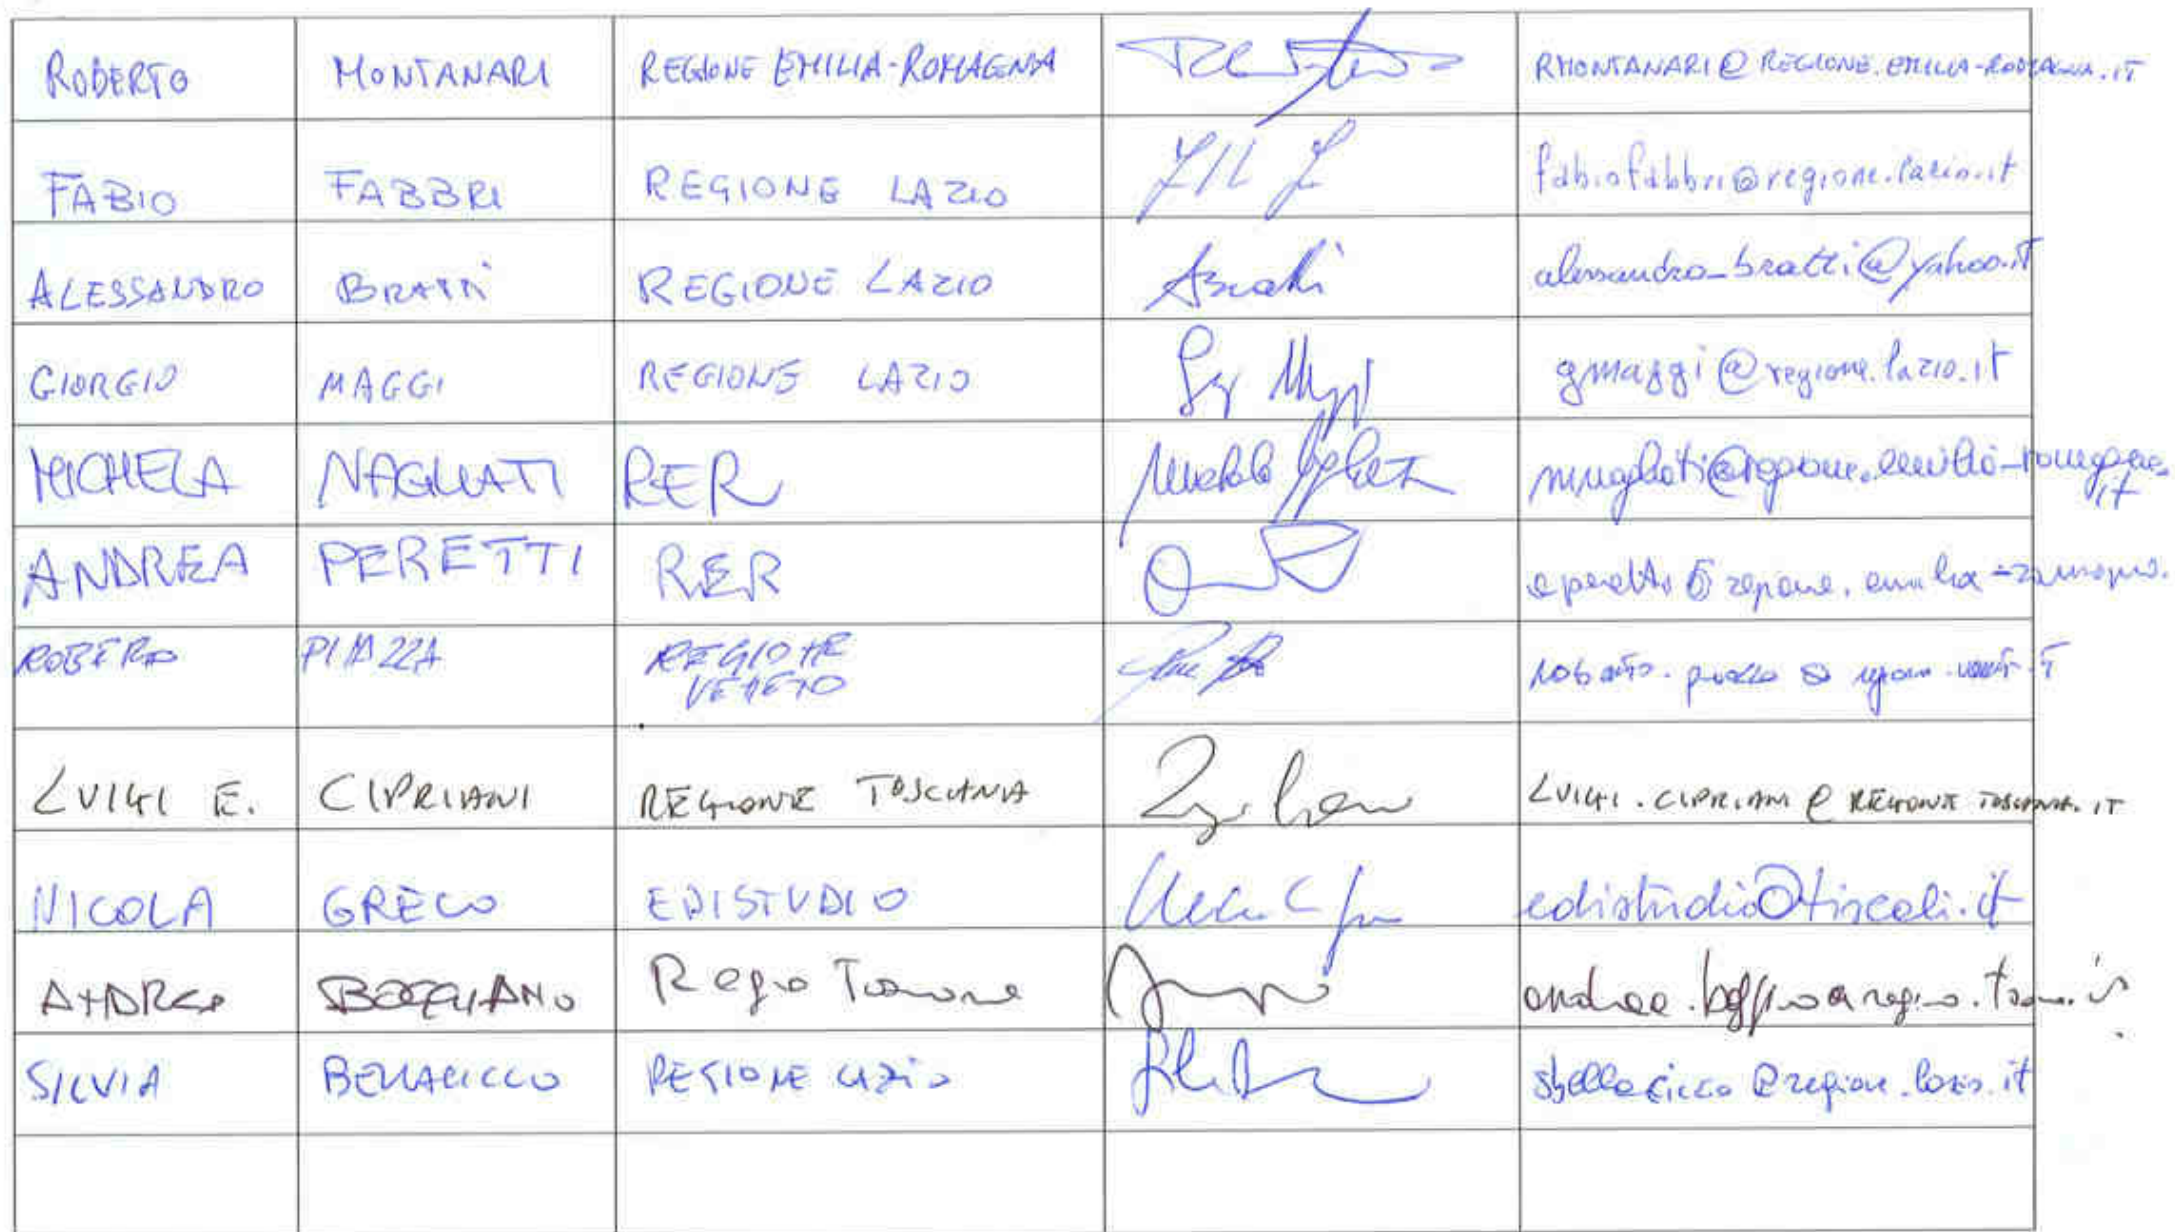 ROBERTO MONTANARI REGIONE EMILIA-ROMAGNA RMONTANARI@REGIONE.EMILIA-ROMAGNA.IT
FABIO FABBRI REGIONE LAZIO fabiofabbri@regione.lazio.it
ALESSANDRO BRATTI REGIONE LAZIO alessandro_bratti@yahoo.it
GIORGIO MAGGI REGIONE LAZIO gmaggi@regione.lazio.it
MICHELA NAGLIATI RER mnagliati@regione.emilia-romagna.
it
ANDREA PERETTI RER aperetti@regione.emilia-romagna.
ROBERTO PIAZZA REGIONE
VENETO
LUIGI E. CIPRIANI REGIONE TOSCANA LUIGI.CIPRIANI@REGIONE TOSCANA.IT
NICOLA GRECO EDISTUDIO edistudio@tiscali.it
ANDREA BOGGIANO
SILVIA BELLACICCO REGIONE LAZIO sbellacicco@regione.lazio.it